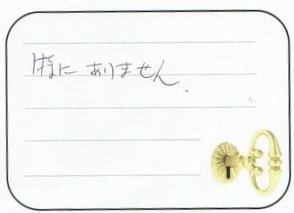 特にありません.